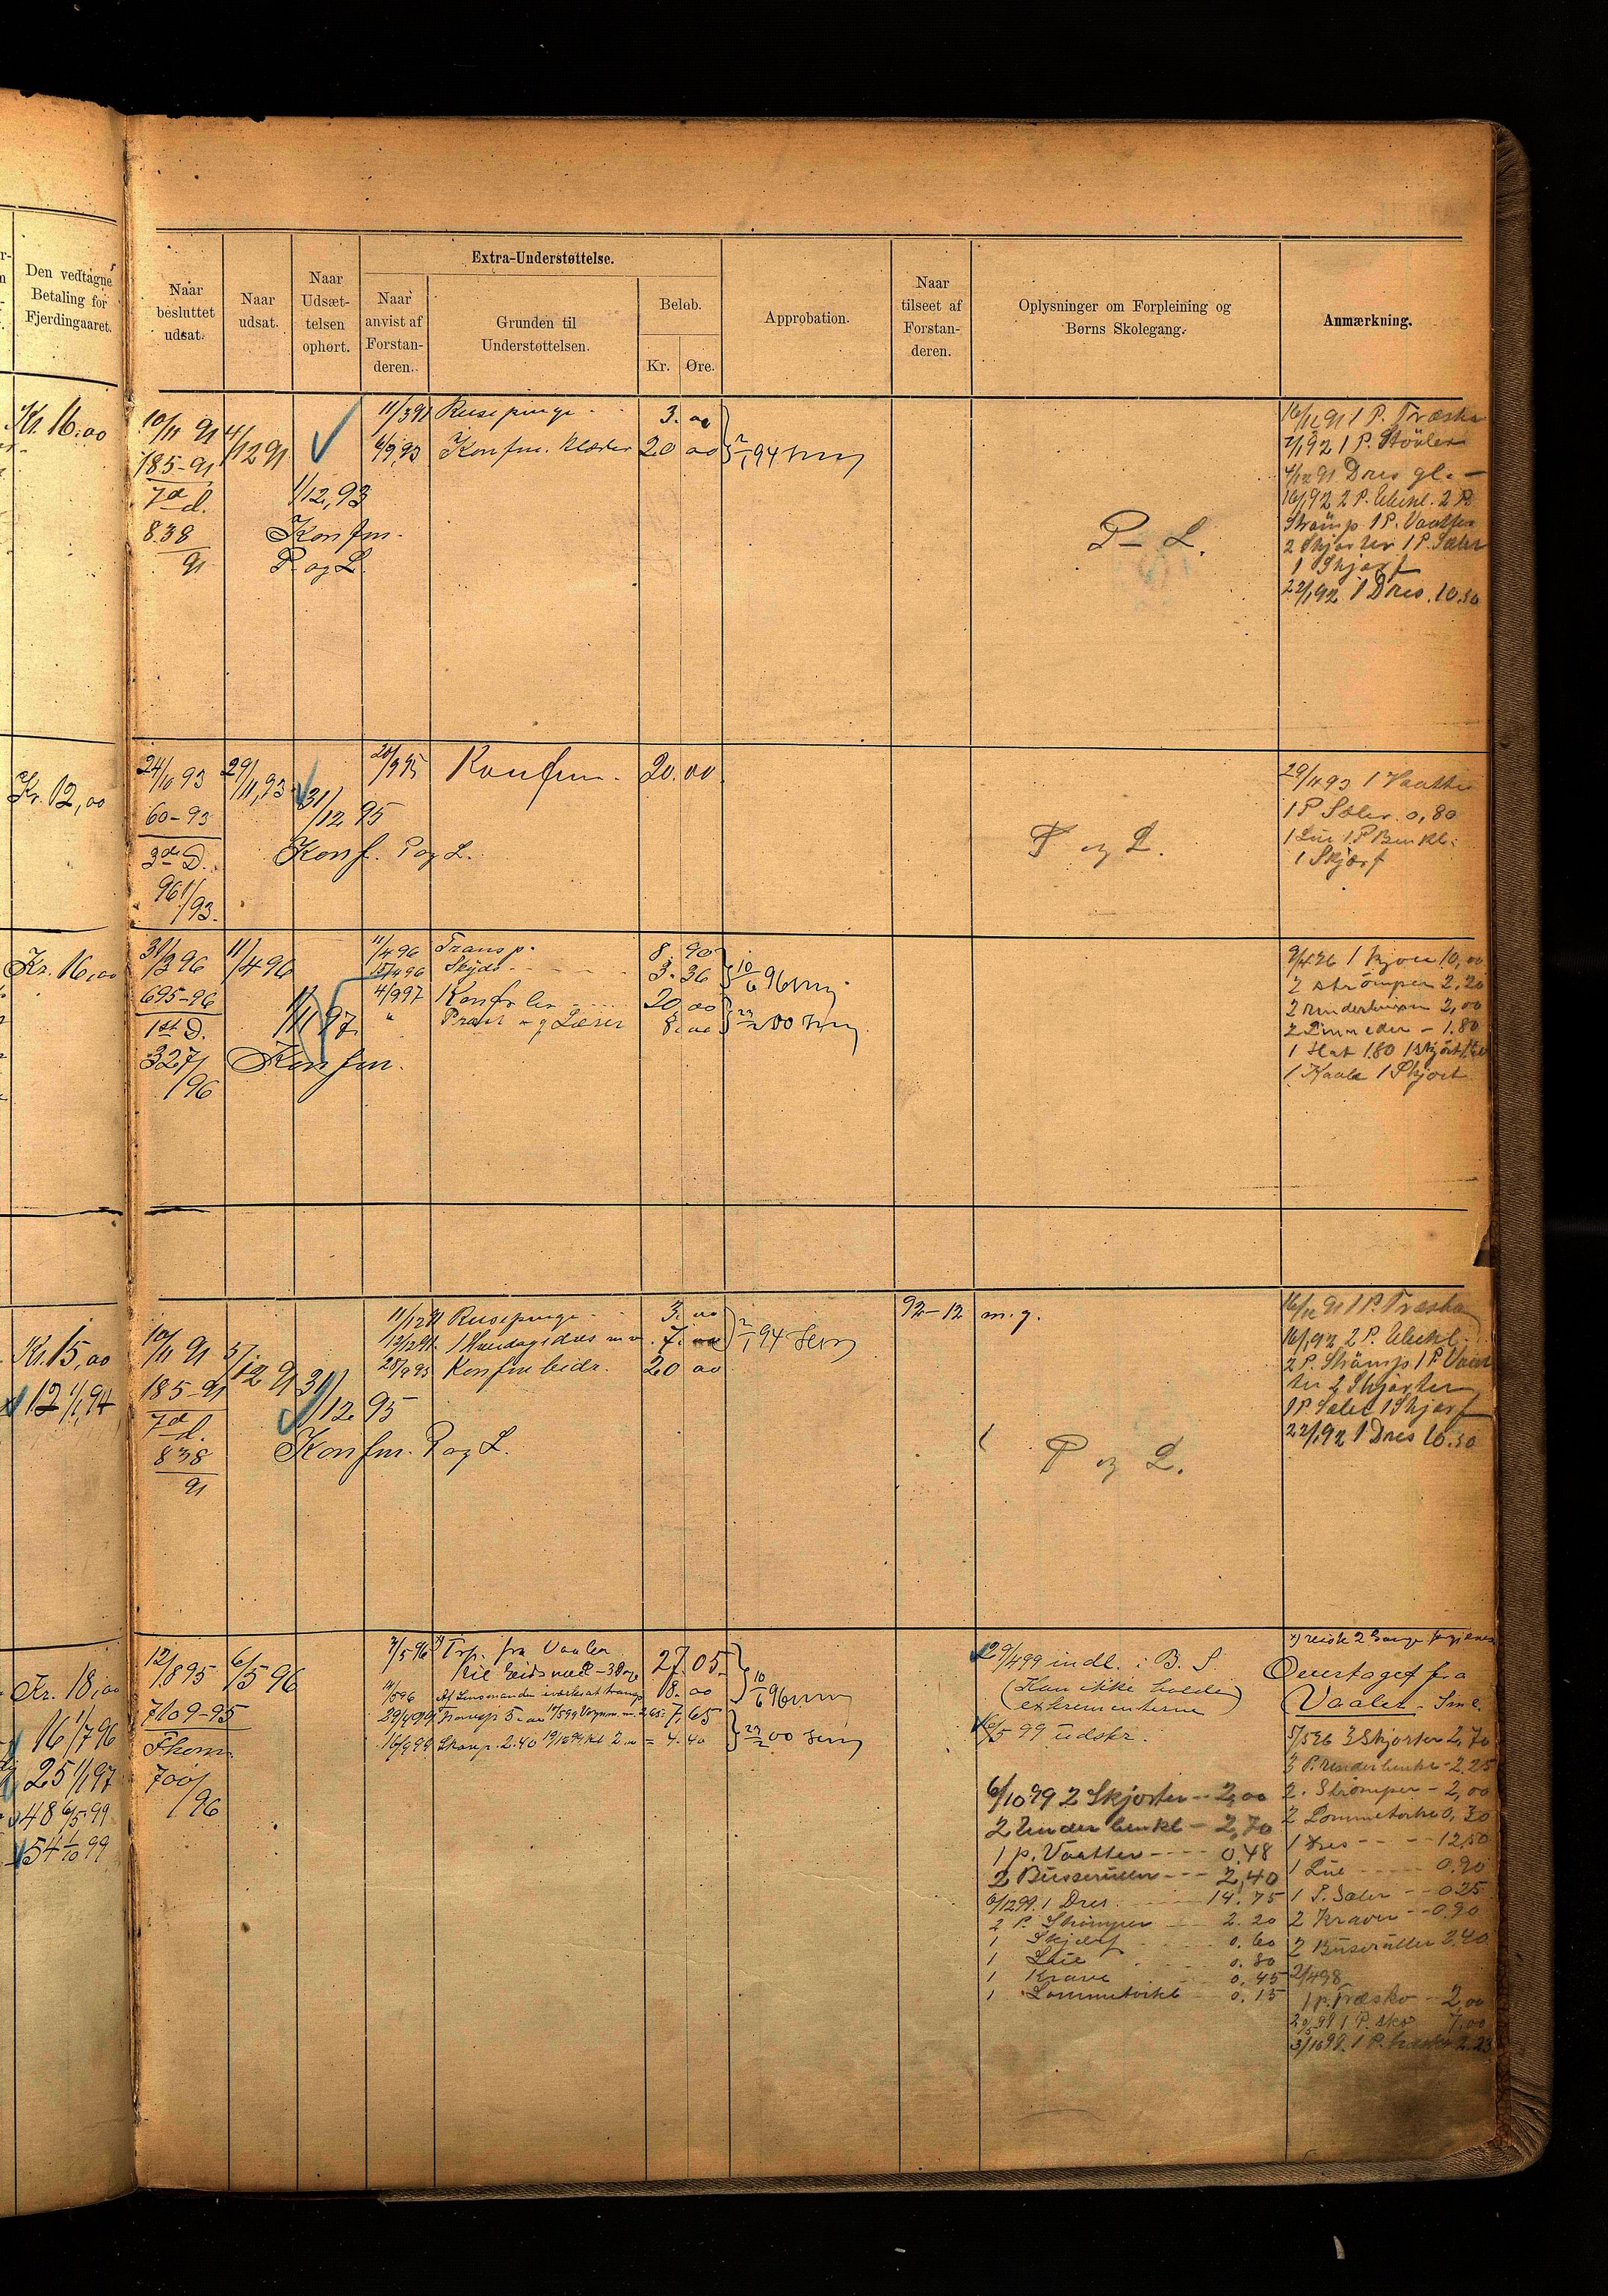 Den vedtagne
Betaling for
Fjerdingaaret.
Naar
besluttet
udsat.
Naar
udsat.
Naar
Udsæt-
telsen
ophørt.
Extra-Understøttelse.
Naar
anvist af
Forstan-
deren.
Grunden til
Understøttelsen.
Beløb.
Kr.
Øre.
Approbation.
Naar
tilseet af
Forstan-
deren.
Oplysninger om Forpleining og
Børns Skolegang.
Anmærkning.
Kr. 16,00
10/11 91
185-91
7de d.
838
91
4/12 91
1/12,93
Konfm.
P. og L.
Reisepenge
3. 00
6/9,93 Konfm. Klæder 20 00
2/1 94
P- L.
16/12 91 1 P. Træsko
7/1 92 1 P. Støvler
4/12 91 Dres gl. -
16/1 92 2 P. Ubekl. 2 P.
Strømp 1 P. Vaatter
2 Skjorter 1 P. Sæler
1 Skjærf
22/1 92 1 Dres. 10.50
Kr. 12,00
24/10 93
60-93
3de D.
961/93.
29/11,93
31/12 95
Konf. P og L.
20/9 95 Konfm. 20.00
P og L.
29/11 93 1 Vaatter
1 P Sæler. 0,80
1 Lue 1 P Benkl.
1 Skjærf
Kr. 16,00
31/3 96
695-96
1ste D.
327/96
11/4 96
1/11 97
Konfm.
11/4 96 Transp. 8. 90
15/4 96 Skyds 3. 36
4/9 97 Konf 20,00
" Præst og Læser 8. 00
10/6 96
9/4 96 1 Kjole 10,00
2 Strømper 2,20
2 Underlinjer 2,00
1.80
1 Hat 1.80 1 Skjørt
1 Kaabe 1 Skjørt
Kr. 15,00
12 1/1,94
10/11 91
185-91
7de d.
838
91
12 91
31/12 95
Konfm. P og L.
11/12 91 Reisepenge 3. 00
12/12 91. 1 Hverdagsdres 7. 00
25/9 95 Konfm bidr. 20 00
2/1 94
92-12
m.g.
P og L.
16/12 91 1 P. Træsko
16/1 92 2 P. Ubekl.
2 P. Strømp 1 P. Vaat
ter 2 Skjorter
1 P. Sæler 1 Skjærf
22/1 92 1 Dres 10.50
Kr. 18,00
16 1/7 96
25 1/1 97
48 6/5 99
54 1/10 99
12/8 95
7109-95
Fkom.
700/96
6/5 96
7/5 96 Trp. fra Vaaler
til Eidsvold 27.05
Af Lensmanden 18. 00
29/4 99 Transp 5.00 7,65
2.40 4.40
10/6 96
29/4 99 indl. i B. S.
(Kan ikke holde
extrementerne)
6/5 99 udskr.
6/10 99 2 Skjorter -- 2,00
2 Underbenkl - 2,70
1 p. Vaatter ---- 0,48
2 Busseruller --- 2,40
6/12 99. 1 Dres 14.75
2 P. Strømper 2.20
1 Skjærf 0.60
1 Lue 0.80
1 Krave 0.45
1 Lommetørkl 0.15
Overtaget fra
Vaaler Sml.
5/5 96 3 Skjorter 2,70
3 P. underbenkl - 2.25
2. Strømper - 2,00
2 Lommetørkl 0,30
1 Dres - - - 12,50
1 Lue ----- 0.90
1 P. Sæler -- 0.25
2 Kraver -- 0.90
2 Busseruller 2.40
2/4 98
1 p. Træsko - 2,00
1 P. sko 7.00
3/10 99. 1 P. træsko 2.23